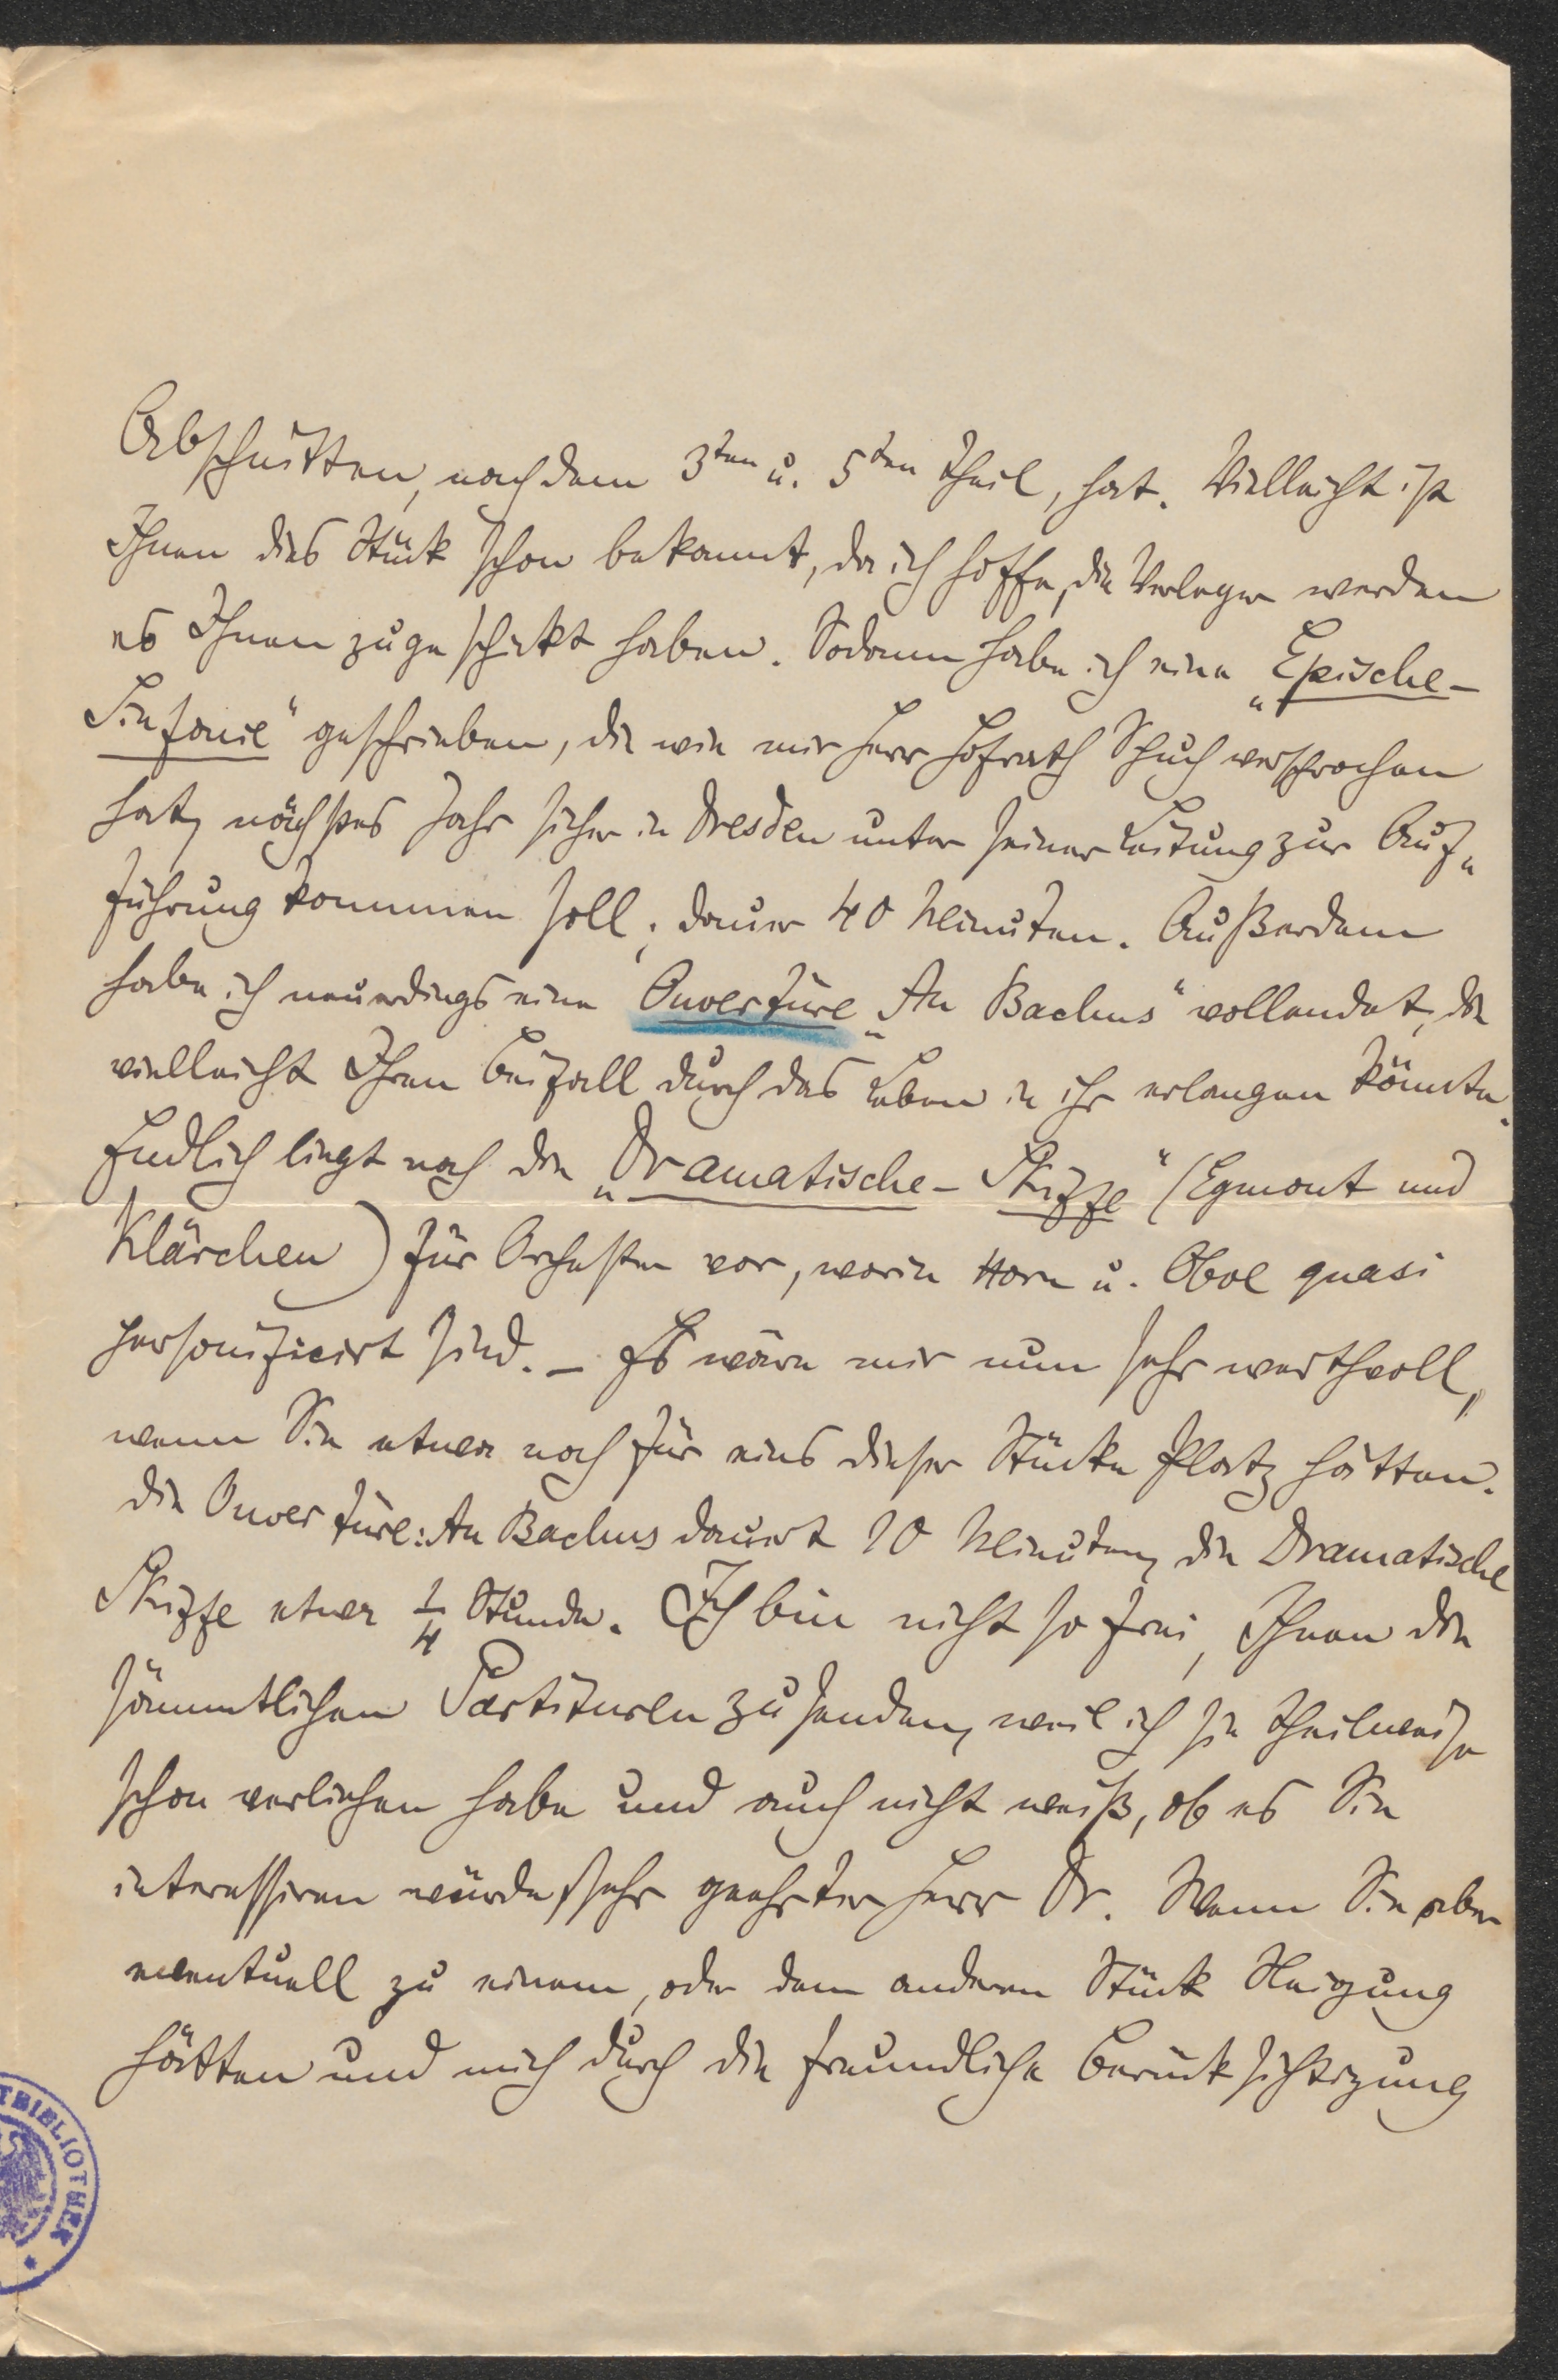 Abschnitten, nach dem 3ten u. 5ten Theil, hat. Vielleicht ist
Ihnen dies Stück schon bekannt, da ich hoffe, die Verleger werden
es Ihnen zugeschickt haben. Sodann habe ich eine „Epische-
Sinfonie“ geschrieben, die wie mir Herr Hofrath Schuch versprochen
hat, nächstes Jahr sicher in Dresden unter seiner Leitung zur Auf„
führung kommen soll; dauer 40 Minuten. Außerdem
habe ich neuerdings eine Ouvertüre „An Bachus“ vollendet, die
vielleicht Ihren Beifall durch das Leben in ihr erlangen könnte.
Endlich liegt noch die „Dramatische-Skizze“ (Egmont und
Klärchen) für Orchester vor, worin Horn u. Oboe quasi
personificirt sind. – Es wäre mir nun sehr werthvoll,
wenn Sie etwa noch für eins dieser Stücke Platz hätten.
die Ouvertüre: An Bachus dauert 10 Minuten, die Dramatische
Skizze etwa 1/4 Stunde. Ich bin nicht so frei, Ihnen die
sämmtlichen Partituren zu senden, weil ich sie theilweise
schon verliehen habe und auch nicht weiß, ob es Sie
interessiren würde, sehr geehrter Herr Dr. Wenn Sie aber
eventuell zu einem, oder dem anderen Stück Neigung
hätten und mich durch die freundliche Berücksichtigung
TBIBLIOTHEK